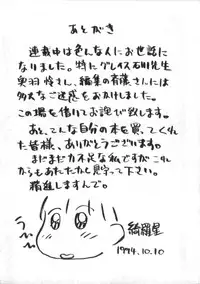 あとがき
連載中は色んな人にお世話に
なりました。特にグレイス石川先生
奥羽怜さん、編集の斉藤さんには
多大なご迷惑をおかけしました。
この場を借りてお詫び致します。
あと、こんな自分の本を買ってくれ
た皆様、ありがとうございます。
まだまだ力不足な私ですが これ
からもあたたかく見守って下さい。
精進しますんで。
綺羅星
1994.10.10